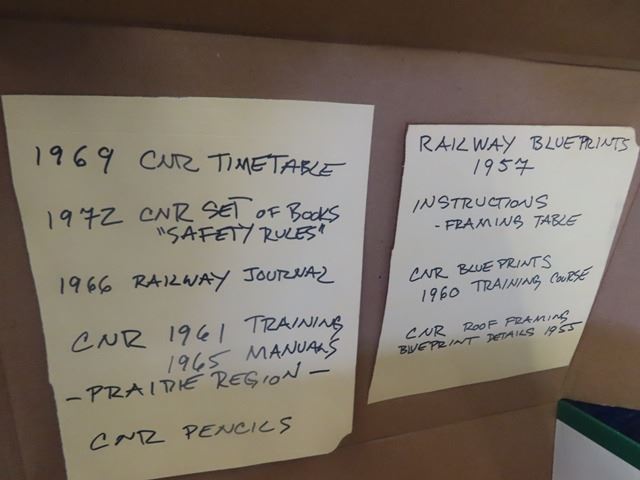 1969 CNR TIMETABLE
1972 CNR SET OF BOOKS
"SAFETY RULES"
1966 RAILWAY JOURNAL
CNR 1961 TRAINING
1965 MANUALS
- PRAIRIE REGION -
CNR PENCILS
RAILWAY BLUEPRINTS
1957
INSTRUCTIONS
- FRAMING TABLE
CNR BLUEPRINTS
1960 TRAINING COURSE
CNR ROOF FRAMING
BLUEPRINT DETAILS 1955